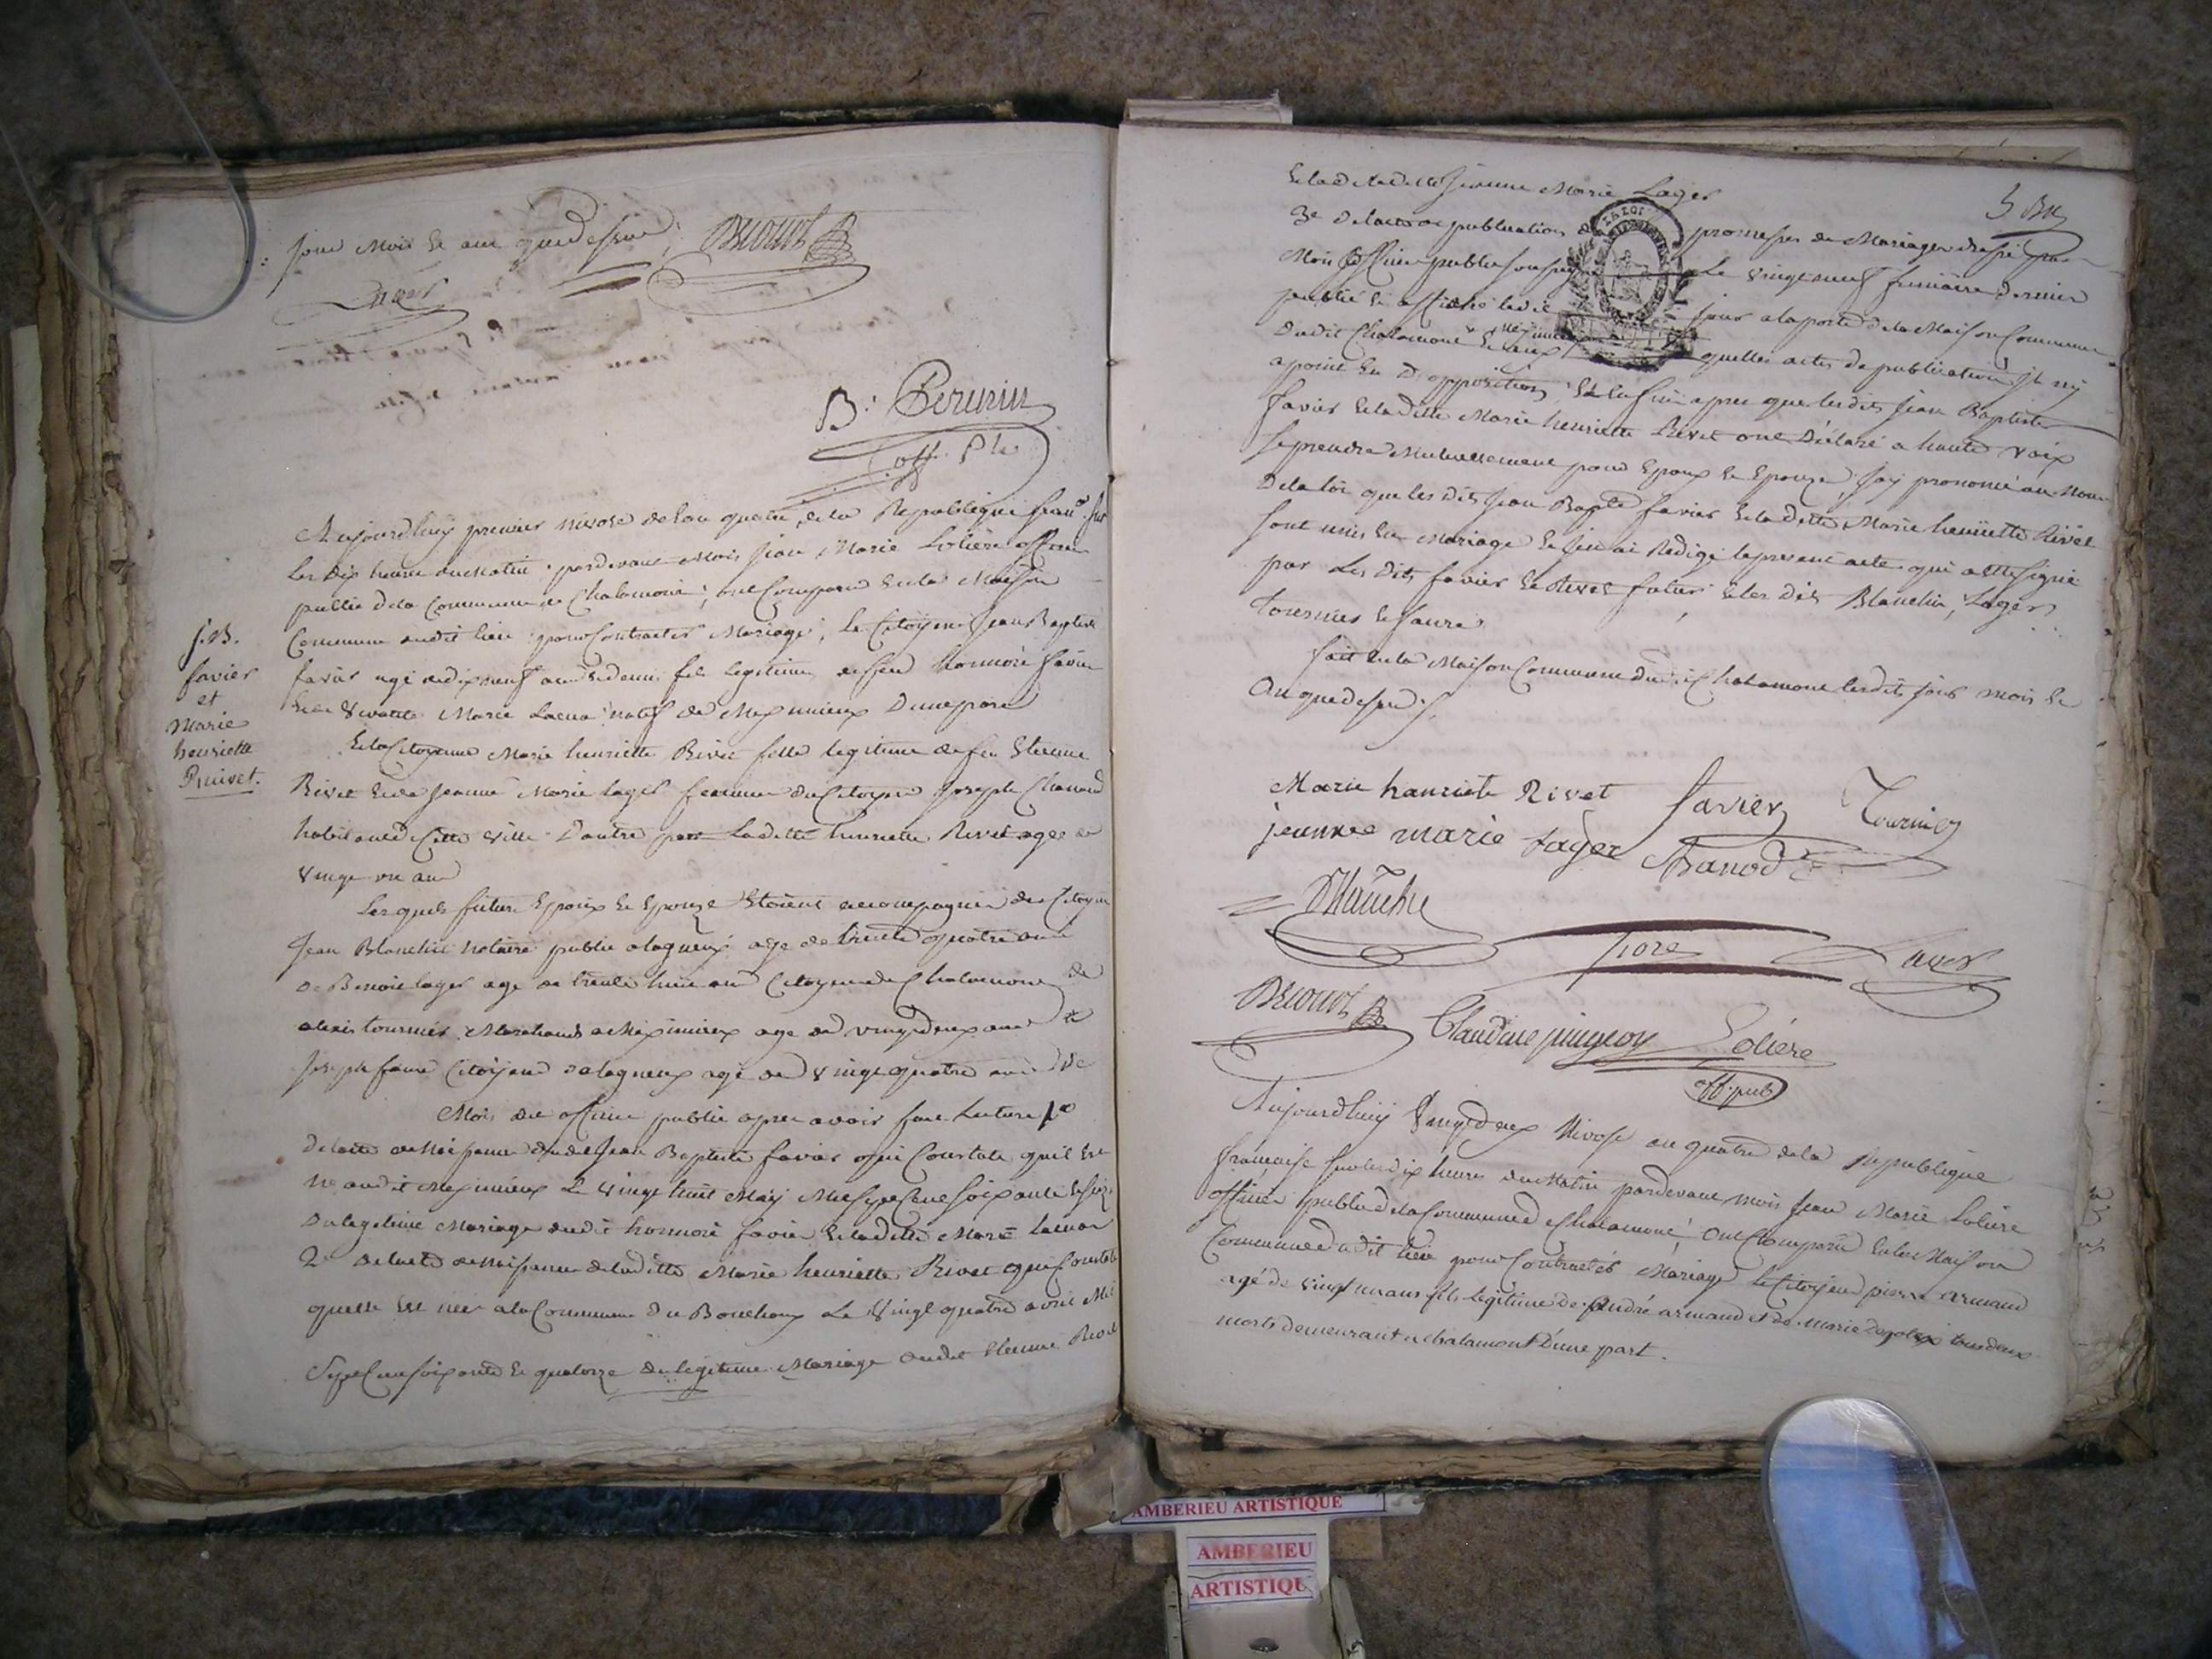 jour mois et an que dessus
B. Perurin
off. Ple
Aujourdhuy premier nivose de lan quatre de la Republique franc. sur
les dix heures du matin, pardevant moi Jean Marie Lolière officier
public de la commune de Chalamont, ont comparu en la maison
commune dudit lieu pour contracter mariage, le Citoyen Jean Baptiste
favier agé de dix neuf ans et demi fils legitime de feu honnoré favier
et de vivante Marie natif de Meximieux dune part
J.B.
favier
et
Marie
henriette
Rivet.
Et la Citoyenne Marie henriette Rivet fille legitime de feu Etienne
Rivet et de Jeanne Marie lager femme du Citoyen Joseph Chanaud
habitant de cette ville dautre part ladette henriette Rivet agée de
vingt un ans
Lesquels futurs Epoux et Epouze Etoient accompagnés de Citoyen
Jean Blanchin notaire public a lagneux agé de trente quatre ans
de Benoit lager agé de trente huit ans Citoyen de Chalamont de
alexis tournier marchand a Meximieux agé de vingt deux ans &
Joseph faure Citoyen de lagneux agé de vingt quatre ans
Moi dit officier public apres avoir fait lecture 1e
de lacte de naissance dudit Jean Baptiste favier qui constate quil est
né audit Meximieux le vingt huit May mil sept cent soixante et seize
du legitime mariage dudit honnoré favier et ladite Marie
2e de lacte de naissance de laditte Marie henriette Rivet qui constate
quelle est née a la commune du Bouchoux le vingt quatre avril mil
sept cent soixante et quatorze du legitime mariage dudit Etienne Rivet
et la ditte Jeanne Marie Lager
3e de lacte de publication de promesses de mariage dressé par
moi officier public soussigné le vingt neuf frimaire dernier
publié et affiché ledit jour a la porte de la maison commune
dudit Chalamont & Meximieux quelles actes de publication il ny
a point eu dopposition, Et enfin apres que lesdits Jean Baptiste
favier et ladette Marie henriette Rivet ont déclaré a haute voix
se prendre mutuellement pour Epoux et Epouze, jay prononcé au nom
de la loi que les dits Jean Bapte favier et ladette Marie henriette Rivet
sont unis en mariage et jen ai redigé le present acte qui a été signé
par les dits favier et Rivet futurs et les dits Blanchin, Lager,
tournier et faure
fait en la maison commune dudit Chalamont lesdits jour mois et
an que dessus
Marie hanriete Rivet favier Tournier
jeanne marie Lager Chanod
Blanchin
fore Lager
Claudine pingeon Lolière
off. pub
Aujourdhuy vingt deux Nivose an quatre de la Republique
francaise sur les dix heures du matin pardevant moi Jean Marie Lolière
officier public de la commune de Chalamont, ont comparu en la maison
commune dudit lieu pour contracter mariage le Citoyen pierre armand
agé de vingt un ans fils legitime de andré armand et de marie tous deux
morts demeurant a chalamont d'une part.
LA LOI
AMBERIEU ARTISTIQUE
AMBERIEU
ARTISTIQU